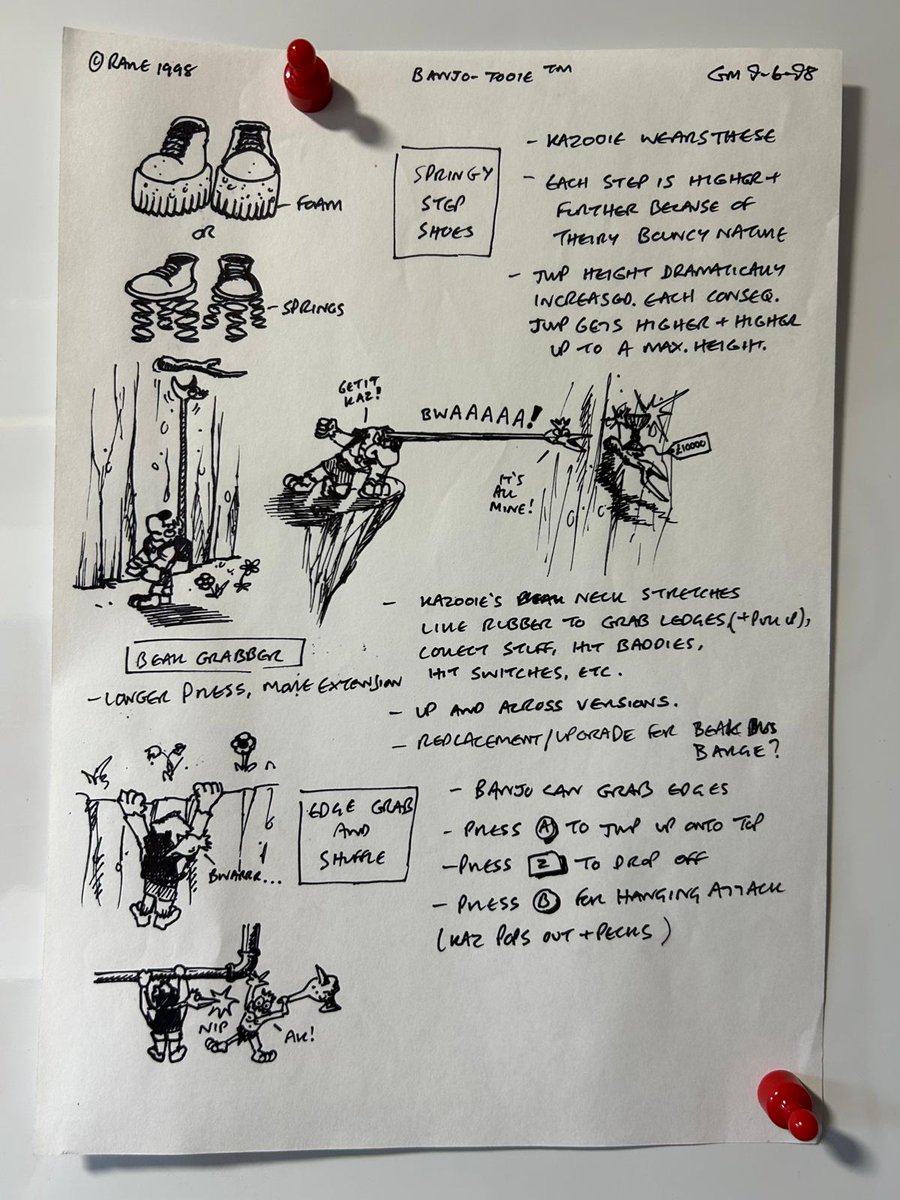 © RARE 1998
BANJO-TOOIE ™
GM 9-6-98
FOAM
OR
SPRINGS
SPRINGY
STEP
SHOES
- KAZOOIE WEARS THESE
- EACH STEP IS HIGHER +
FURTHER BECAUSE OF
THEIRY BOUNCY NATURE
- JUMP HEIGHT DRAMATICALLY
INCREASED. EACH CONSEQ.
JUMP GETS HIGHER + HIGHER
UP TO A MAX. HEIGHT.
GET IT
KAZ!
BWAAAAA!
IT'S
ALL
MINE!
£10000
BEAK GRABBER
- LONGER PRESS, MORE EXTENSION
- KAZOOIE'S NECK STRETCHES
LIKE RUBBER TO GRAB LEDGES, (+ PULL UP),
COLLECT STUFF, HIT BADDIES,
HIT SWITCHES, ETC.
- UP AND ACROSS VERSIONS.
- REPLACEMENT/UPGRADE FOR BEAK
BARGE?
BWARRR...
EDGE GRAB
AND
SHUFFLE
- BANJO CAN GRAB EDGES
- PRESS A TO JUMP UP ONTO TOP
- PRESS Z TO DROP OFF
- PRESS B FOR HANGING ATTACK
(KAZ POPS OUT + PECKS)
NIP
AK!